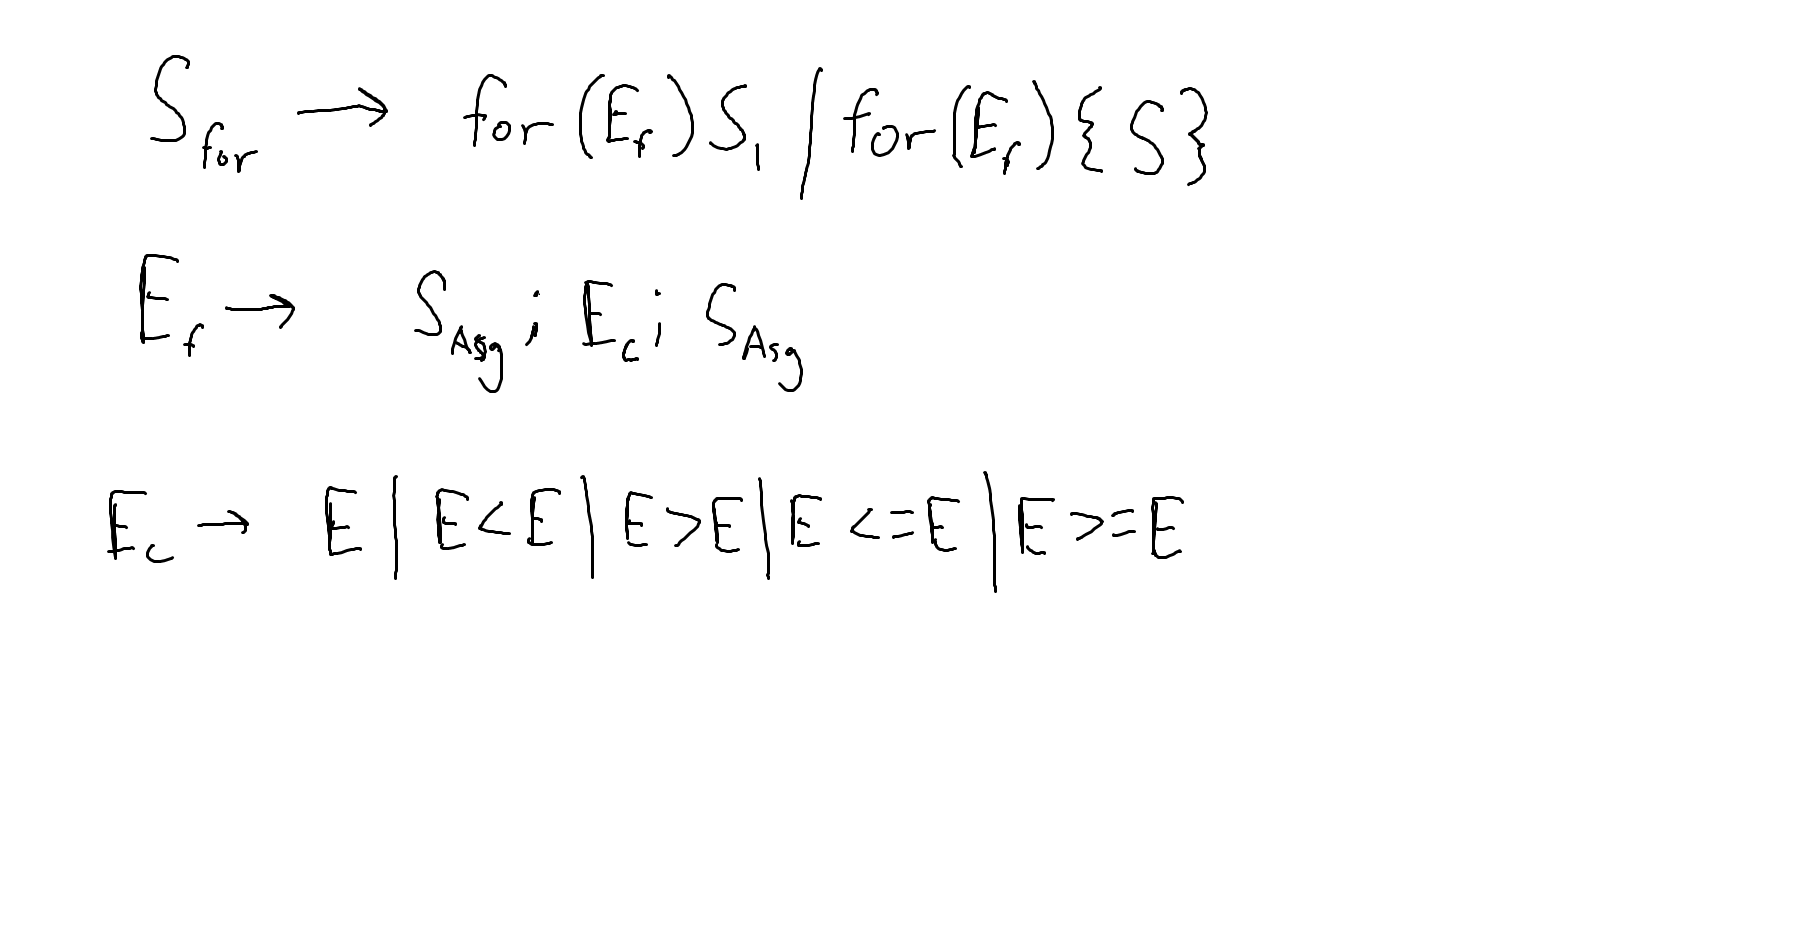 S_for → for(E_f)S_1 | for(E_f){S}
E_f → S_Asg ; E_c ; S_Asg
E_c → E | E<E | E>E | E <=E | E >=E